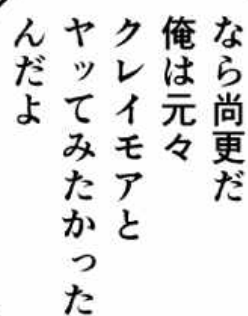 なら尚更だ
俺は元々
クレイモアと
ヤッてみたかった
んだよ